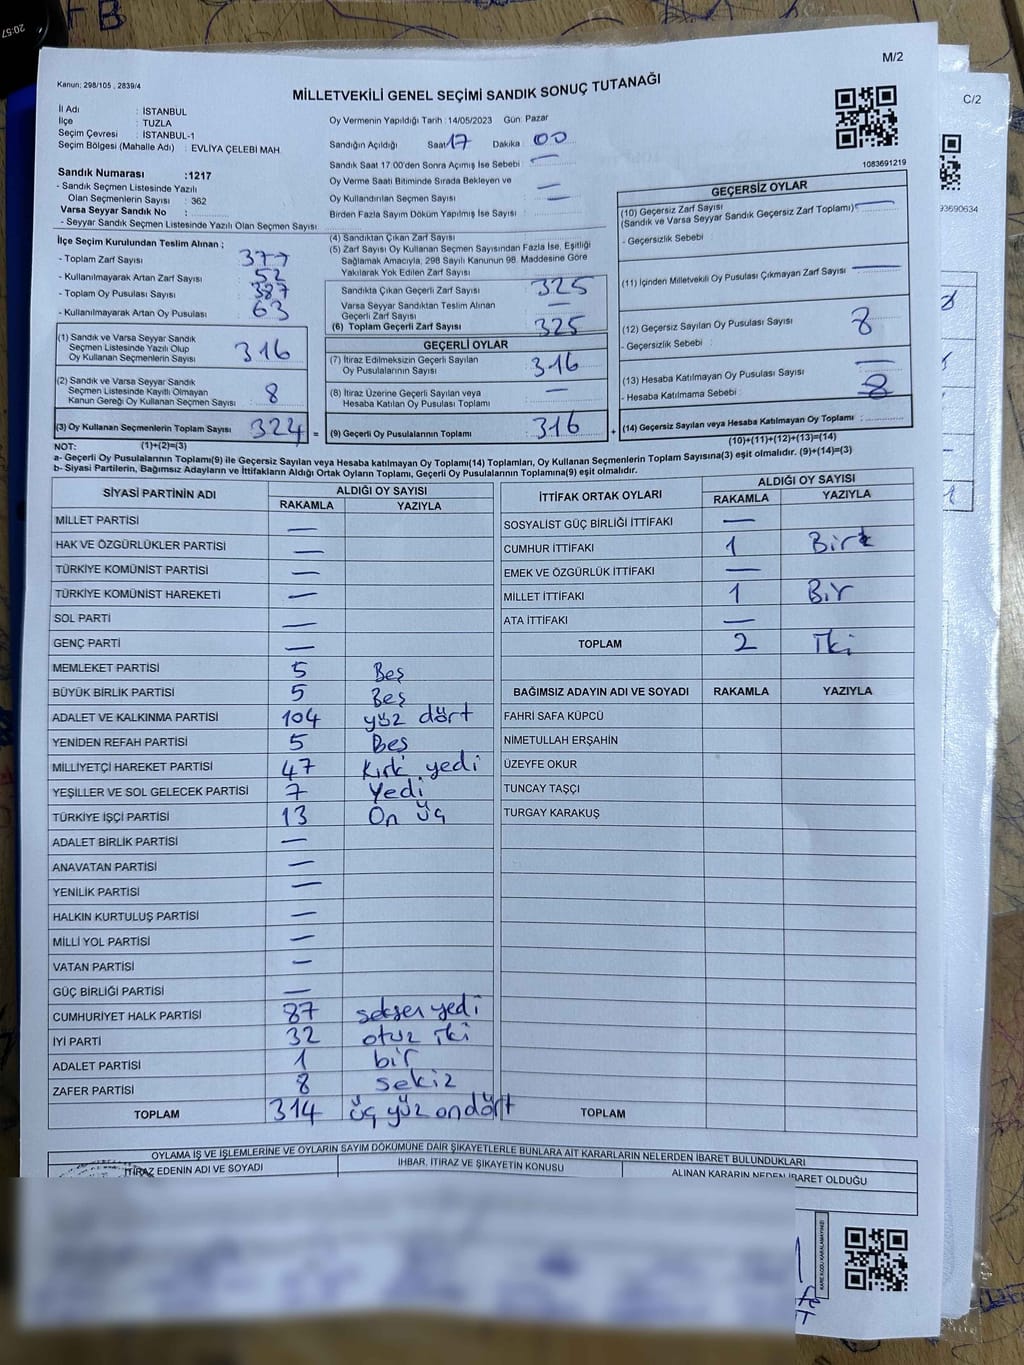 20:57
M/2
C/2
Kanun: 298/105 , 2839/4
MİLLETVEKİLİ GENEL SEÇİMİ SANDIK SONUÇ TUTANAĞI
1083691219
93690634
İl Adı : İSTANBUL
İlçe : TUZLA
Seçim Çevresi : İSTANBUL-1
Seçim Bölgesi (Mahalle Adı) : EVLİYA ÇELEBİ MAH.
Sandık Numarası :1217
- Sandık Seçmen Listesinde Yazılı
Olan Seçmenlerin Sayısı : 362
Varsa Seyyar Sandık No :
- Seyyar Sandık Seçmen Listesinde Yazılı Olan Seçmen Sayısı
Oy Vermenin Yapıldığı Tarih : 14/05/2023 Gün: Pazar
Sandığın Açıldığı Saat 17 Dakika 00
Sandık Saat 17:00'den Sonra Açımış İse Sebebi : —
Oy Verme Saati Bitiminde Sırada Bekleyen ve
Oy Kullandırılan Seçmen Sayısı : —
Birden Fazla Sayım Döküm Yapılmış İse Sayısı : —
İlçe Seçim Kurulundan Teslim Alınan ;
- Toplam Zarf Sayısı : 377
- Kullanılmayarak Artan Zarf Sayısı : 52
- Toplam Oy Pusulası Sayısı : 387
- Kullanılmayarak Artan Oy Pusulası : 63
(1) Sandık ve Varsa Seyyar Sandık
Seçmen Listesinde Yazılı Olup
Oy Kullanan Seçmenlerin Sayısı : 316
(2) Sandık ve Varsa Seyyar Sandık
Seçmen Listesinde Kayıtlı Olmayan
Kanun Gereği Oy Kullanan Seçmen Sayısı : 8
(3) Oy Kullanan Seçmenlerin Toplam Sayısı : 324 =
(4) Sandıktan Çıkan Zarf Sayısı
(5) Zarf Sayısı Oy Kullanan Seçmen Sayısından Fazla İse, Eşitliği
Sağlamak Amacıyla, 298 Sayılı Kanunun 98. Maddesine Göre
Yakılarak Yok Edilen Zarf Sayısı :
Sandıkta Çıkan Geçerli Zarf Sayısı : 325
Varsa Seyyar Sandıktan Teslim Alınan
Geçerli Zarf Sayısı : —
(6) Toplam Geçerli Zarf Sayısı : 325
GEÇERLİ OYLAR
(7) İtiraz Edilmeksizin Geçerli Sayılan
Oy Pusulalarının Sayısı : 316
(8) İtiraz Üzerine Geçerli Sayılan veya
Hesaba Katılan Oy Pusulası Toplamı : —
(9) Geçerli Oy Pusulalarının Toplamı : 316 +
GEÇERSİZ OYLAR
(10) Geçersiz Zarf Sayısı
(Sandık ve Varsa Seyyar Sandık Geçersiz Zarf Toplamı) : —
- Geçersizlik Sebebi :
(11) İçinden Milletvekili Oy Pusulası Çıkmayan Zarf Sayısı : —
(12) Geçersiz Sayılan Oy Pusulası Sayısı : 8
- Geçersizlik Sebebi :
(13) Hesaba Katılmayan Oy Pusulası Sayısı : —
- Hesaba Katılmama Sebebi : 8
(14) Geçersiz Sayılan veya Hesaba Katılmayan Oy Toplamı :
NOT: (1)+(2)=(3) (10)+(11)+(12)+(13)=(14)
a- Geçerli Oy Pusulalarının Toplamı(9) ile Geçersiz Sayılan veya Hesaba katılmayan Oy Toplamı(14) Toplamları, Oy Kullanan Seçmenlerin Toplam Sayısına(3) eşit olmalıdır. (9)+(14)=(3)
b- Siyasi Partilerin, Bağımsız Adayların ve İttifakların Aldığı Ortak Oyların Toplamı, Geçerli Oy Pusulalarının Toplamına(9) eşit olmalıdır.
SİYASİ PARTİNİN ADI ALDIĞI OY SAYISI
RAKAMLA YAZIYLA
MİLLET PARTİSİ —
HAK VE ÖZGÜRLÜKLER PARTİSİ —
TÜRKİYE KOMÜNİST PARTİSİ —
TÜRKİYE KOMÜNİST HAREKETİ —
SOL PARTİ —
GENÇ PARTİ —
MEMLEKET PARTİSİ 5 Beş
BÜYÜK BİRLİK PARTİSİ 5 Beş
ADALET VE KALKINMA PARTİSİ 104 yüz dört
YENİDEN REFAH PARTİSİ 5 Beş
MİLLİYETÇİ HAREKET PARTİSİ 47 Kırk yedi
YEŞİLLER VE SOL GELECEK PARTİSİ 7 Yedi
TÜRKİYE İŞÇİ PARTİSİ 13 On üç
ADALET BİRLİK PARTİSİ —
ANAVATAN PARTİSİ —
YENİLİK PARTİSİ —
HALKIN KURTULUŞ PARTİSİ —
MİLLİ YOL PARTİSİ —
VATAN PARTİSİ —
GÜÇ BİRLİĞİ PARTİSİ —
CUMHURİYET HALK PARTİSİ 87 seksen yedi
İYİ PARTİ 32 otuz iki
ADALET PARTİSİ 1 bir
ZAFER PARTİSİ 8 sekiz
TOPLAM 314 üç yüz ondört
İTTİFAK ORTAK OYLARI ALDIĞI OY SAYISI
RAKAMLA YAZIYLA
SOSYALİST GÜÇ BİRLİĞİ İTTİFAKI —
CUMHUR İTTİFAKI 1 Bir
EMEK VE ÖZGÜRLÜK İTTİFAKI —
MİLLET İTTİFAKI 1 Bir
ATA İTTİFAKI —
TOPLAM 2 İki
BAĞIMSIZ ADAYIN ADI VE SOYADI RAKAMLA YAZIYLA
FAHRİ SAFA KÜPCÜ
NİMETULLAH ERŞAHİN
ÜZEYFE OKUR
TUNCAY TAŞÇI
TURGAY KARAKUŞ
TOPLAM
OYLAMA İŞ VE İŞLEMLERİNE VE OYLARIN SAYIM DÖKÜMÜNE DAİR ŞİKAYETLERLE BUNLARA AİT KARARLARIN NELERDEN İBARET BULUNDUKLARI
İTİRAZ EDENİN ADI VE SOYADI İHBAR, İTİRAZ VE ŞİKAYETİN KONUSU ALINAN KARARIN NEDEN İBARET OLDUĞU
KARE KODU KARALAMAYINIZ!